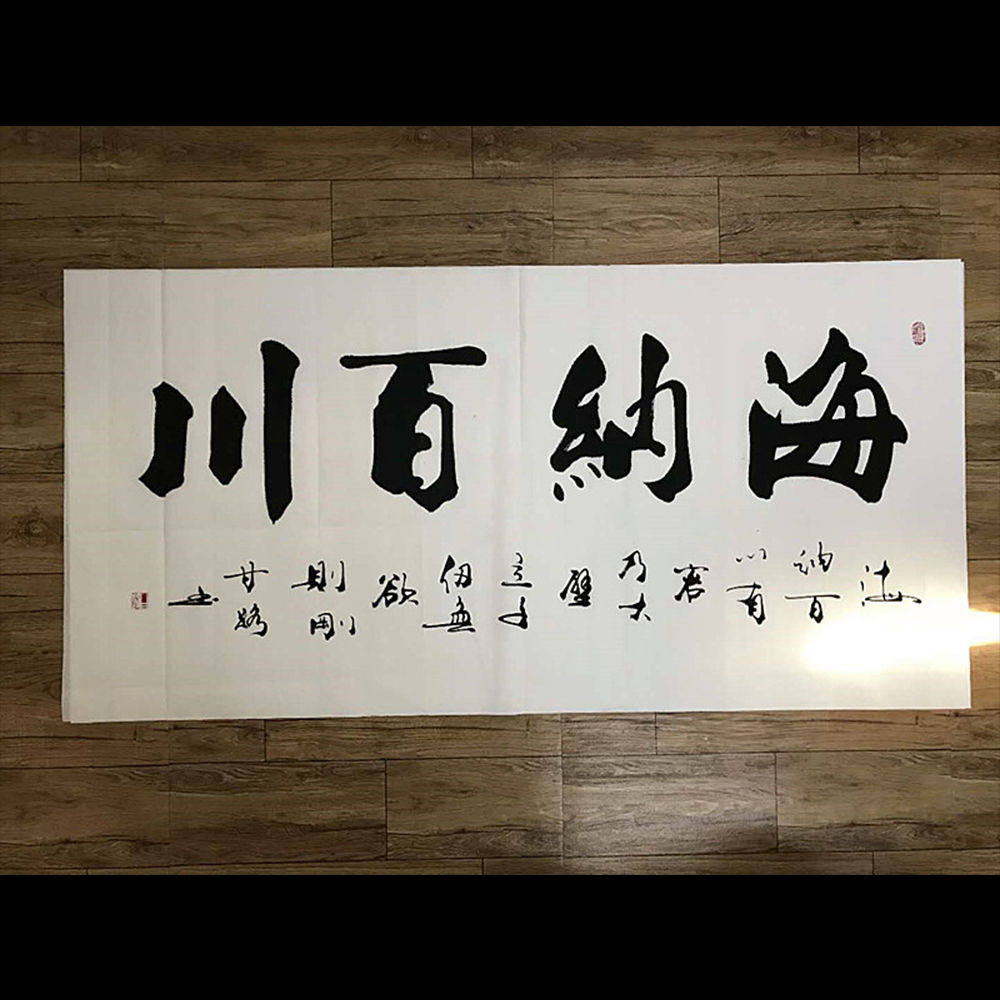 海納百川
海
納百
川有
容
乃大
壁
立千
仞無
欲
則剛
甘
书